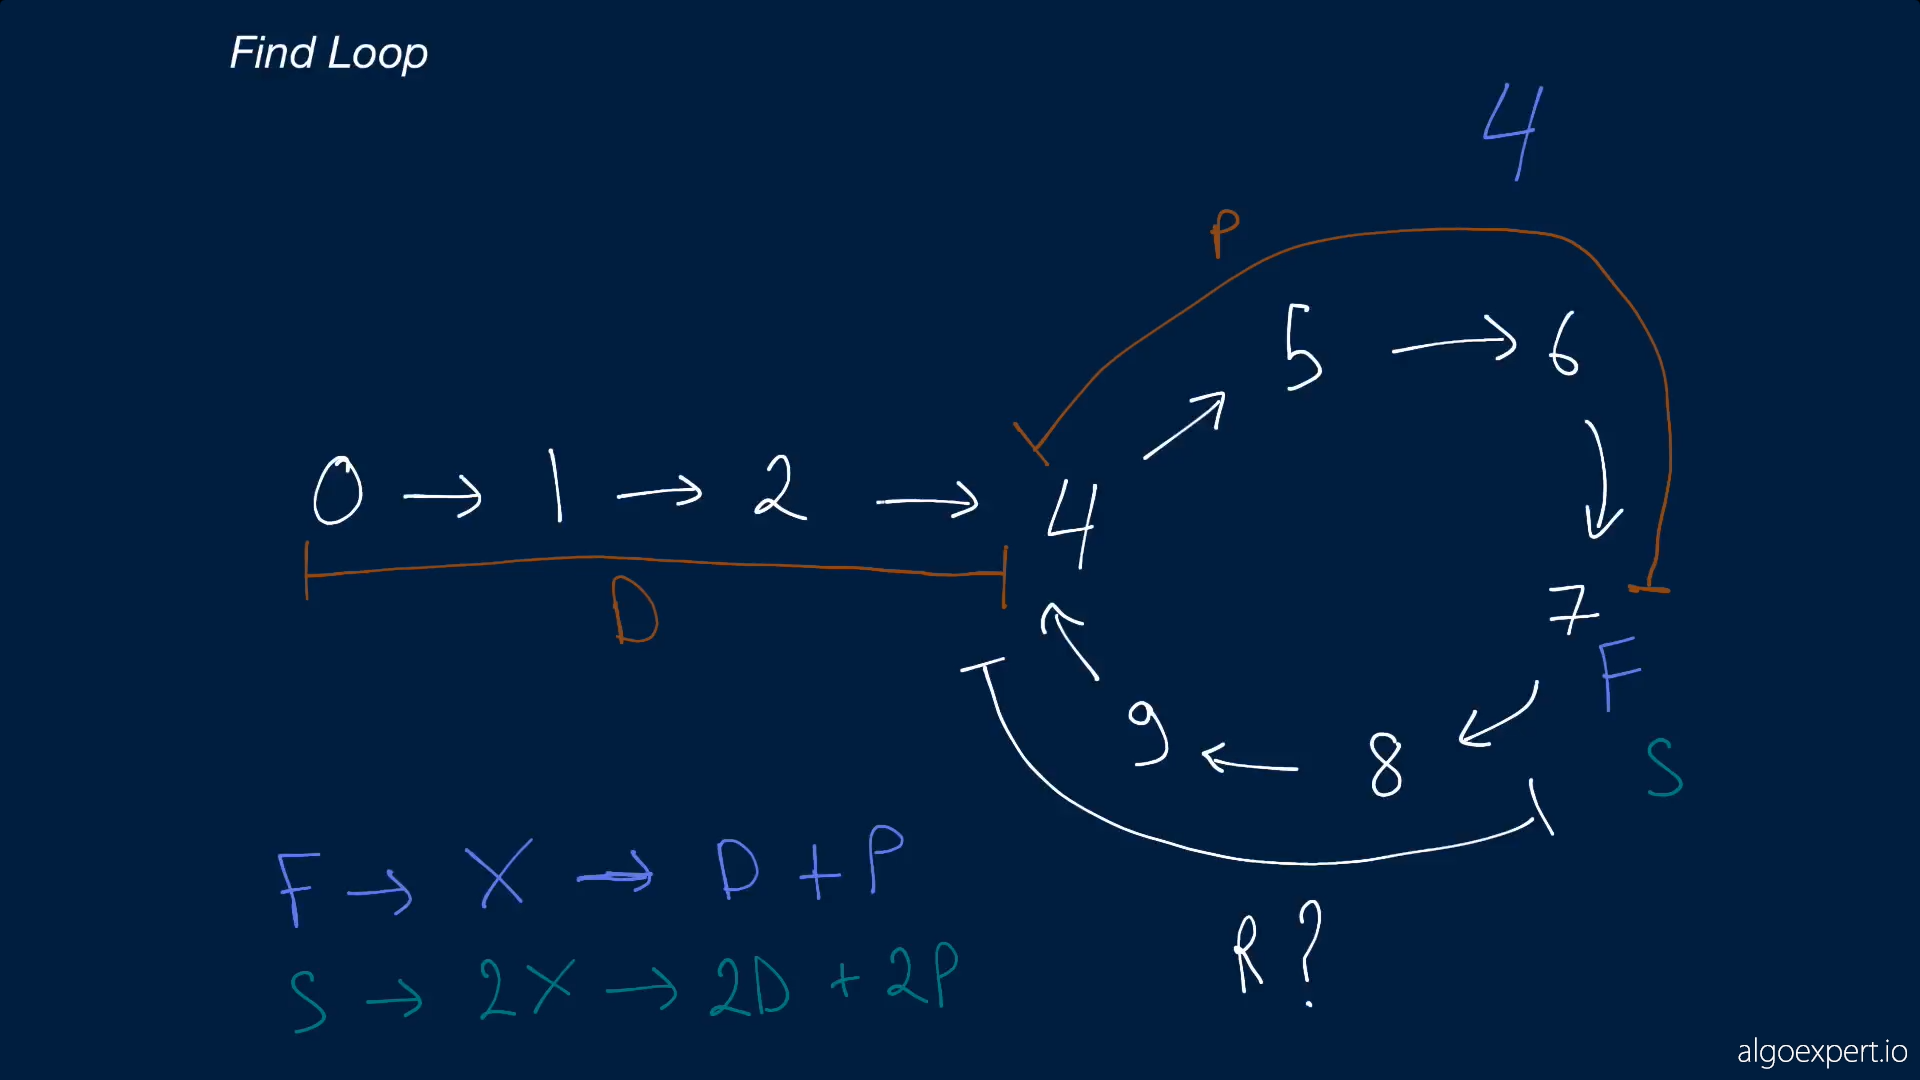 Find Loop
4
P
5 → 6
0 → 1 → 2 → 4
D
7
F
9 ← 8
S
F → X → D + P
R ?
S → 2X → 2D + 2P
algoexpert.io